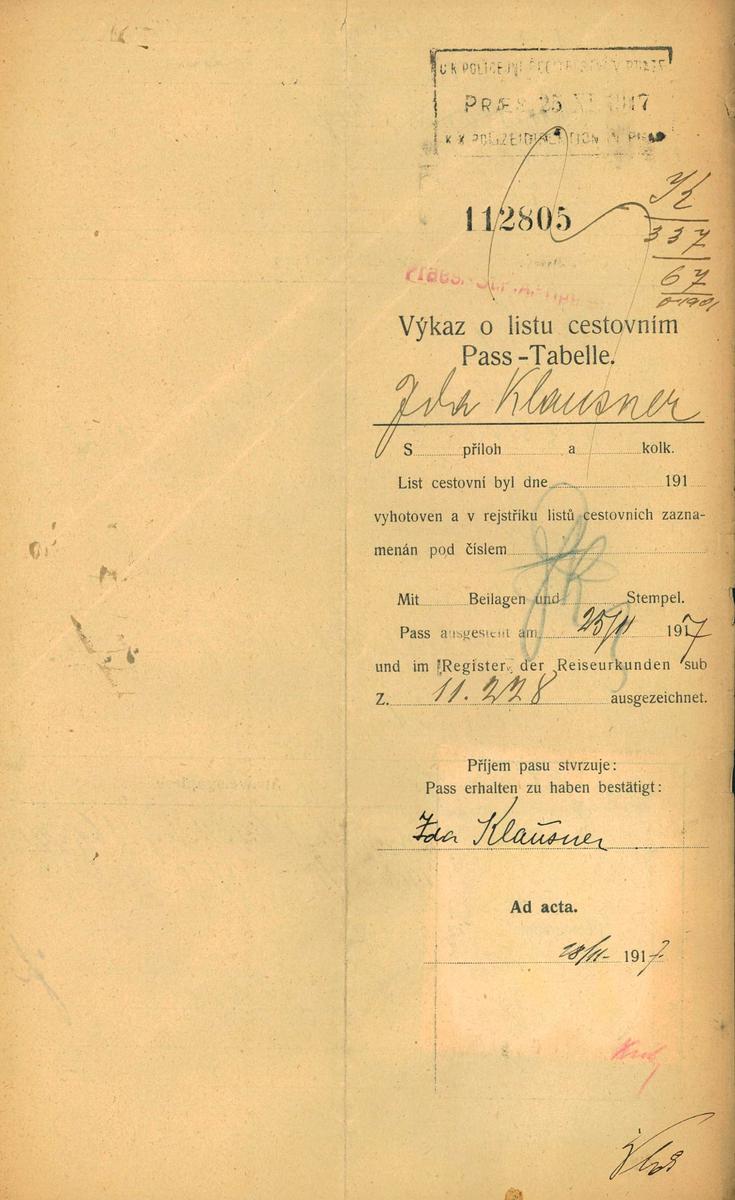 C. K. POLICEJNÍ ŘEDITELSTVÍ V PRAZE
PRÆS. 25 XI. 1917
K. K. POLIZEIDIREKTION IN PRAG
112805
K
337
67
Výkaz o listu cestovním
Pass-Tabelle.
Ida Klausner
S příloh a kolk.
List cestovní byl dne 191
vyhotoven a v rejstříku listů cestovních zazna-
menán pod číslem
Mit Beilagen und Stempel.
Pass ausgestellt am 25/11 1917
und im Register der Reiseurkunden sub
Z. 11.228 ausgezeichnet.
Příjem pasu stvrzuje:
Pass erhalten zu haben bestätigt:
Ida Klausner
Ad acta.
28/11- 1917.